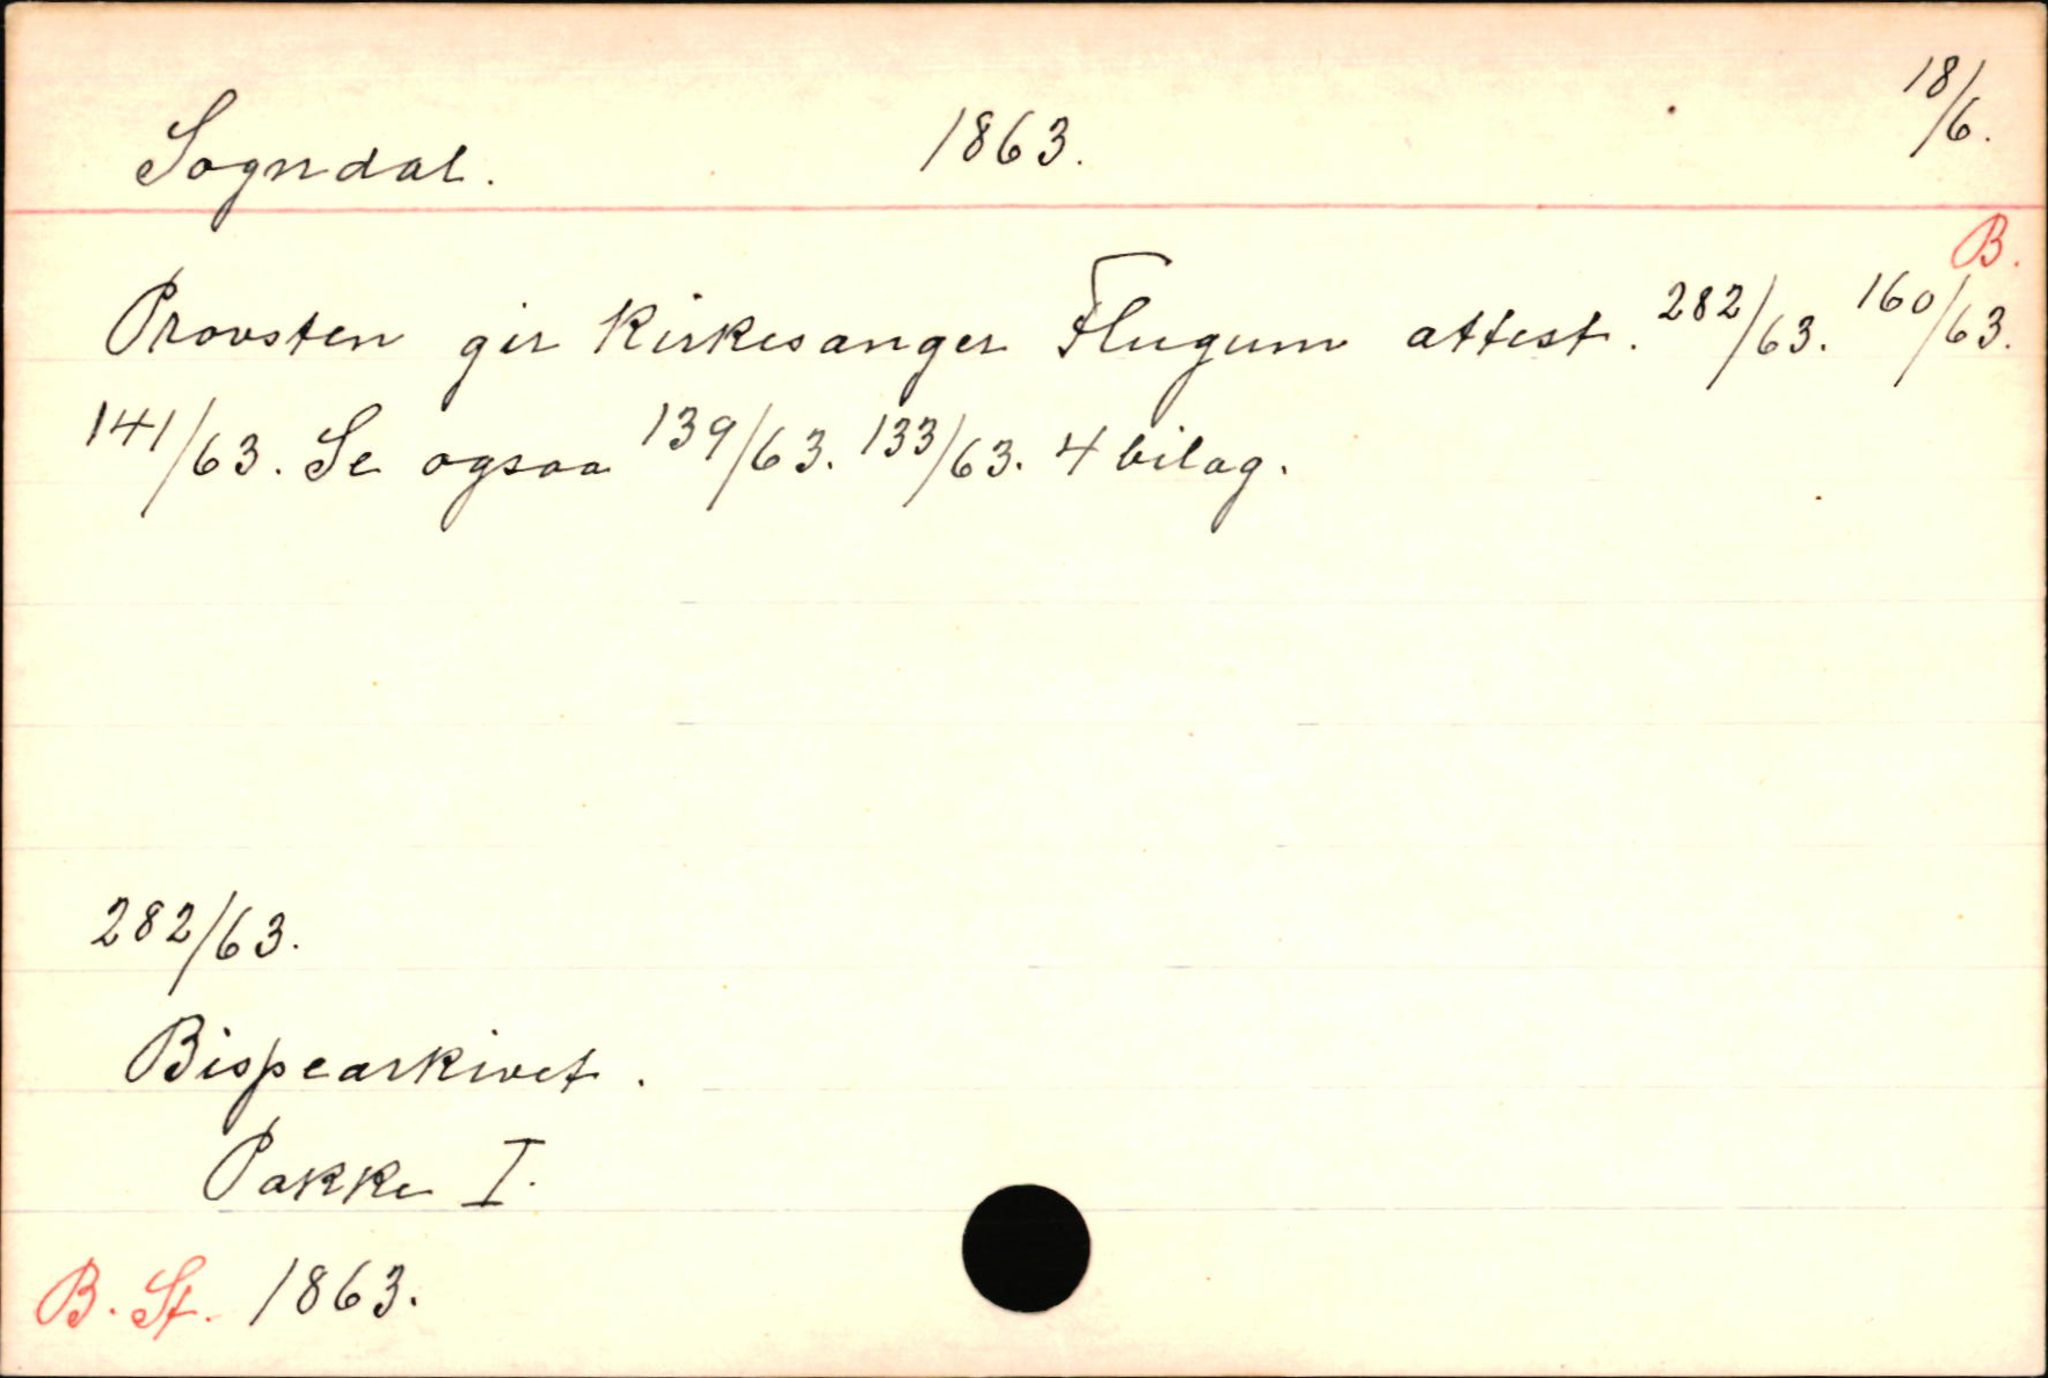 Sogndal. 1863. 18/6.
B.
Provsten gir Kirkesanger Flugum attest. 282/63. 160/63.
141/63. Se ogsaa 139/63. 133/63. 4 bilag.
282/63.
Bispearkivet.
Pakke I.
B. St. 1863.